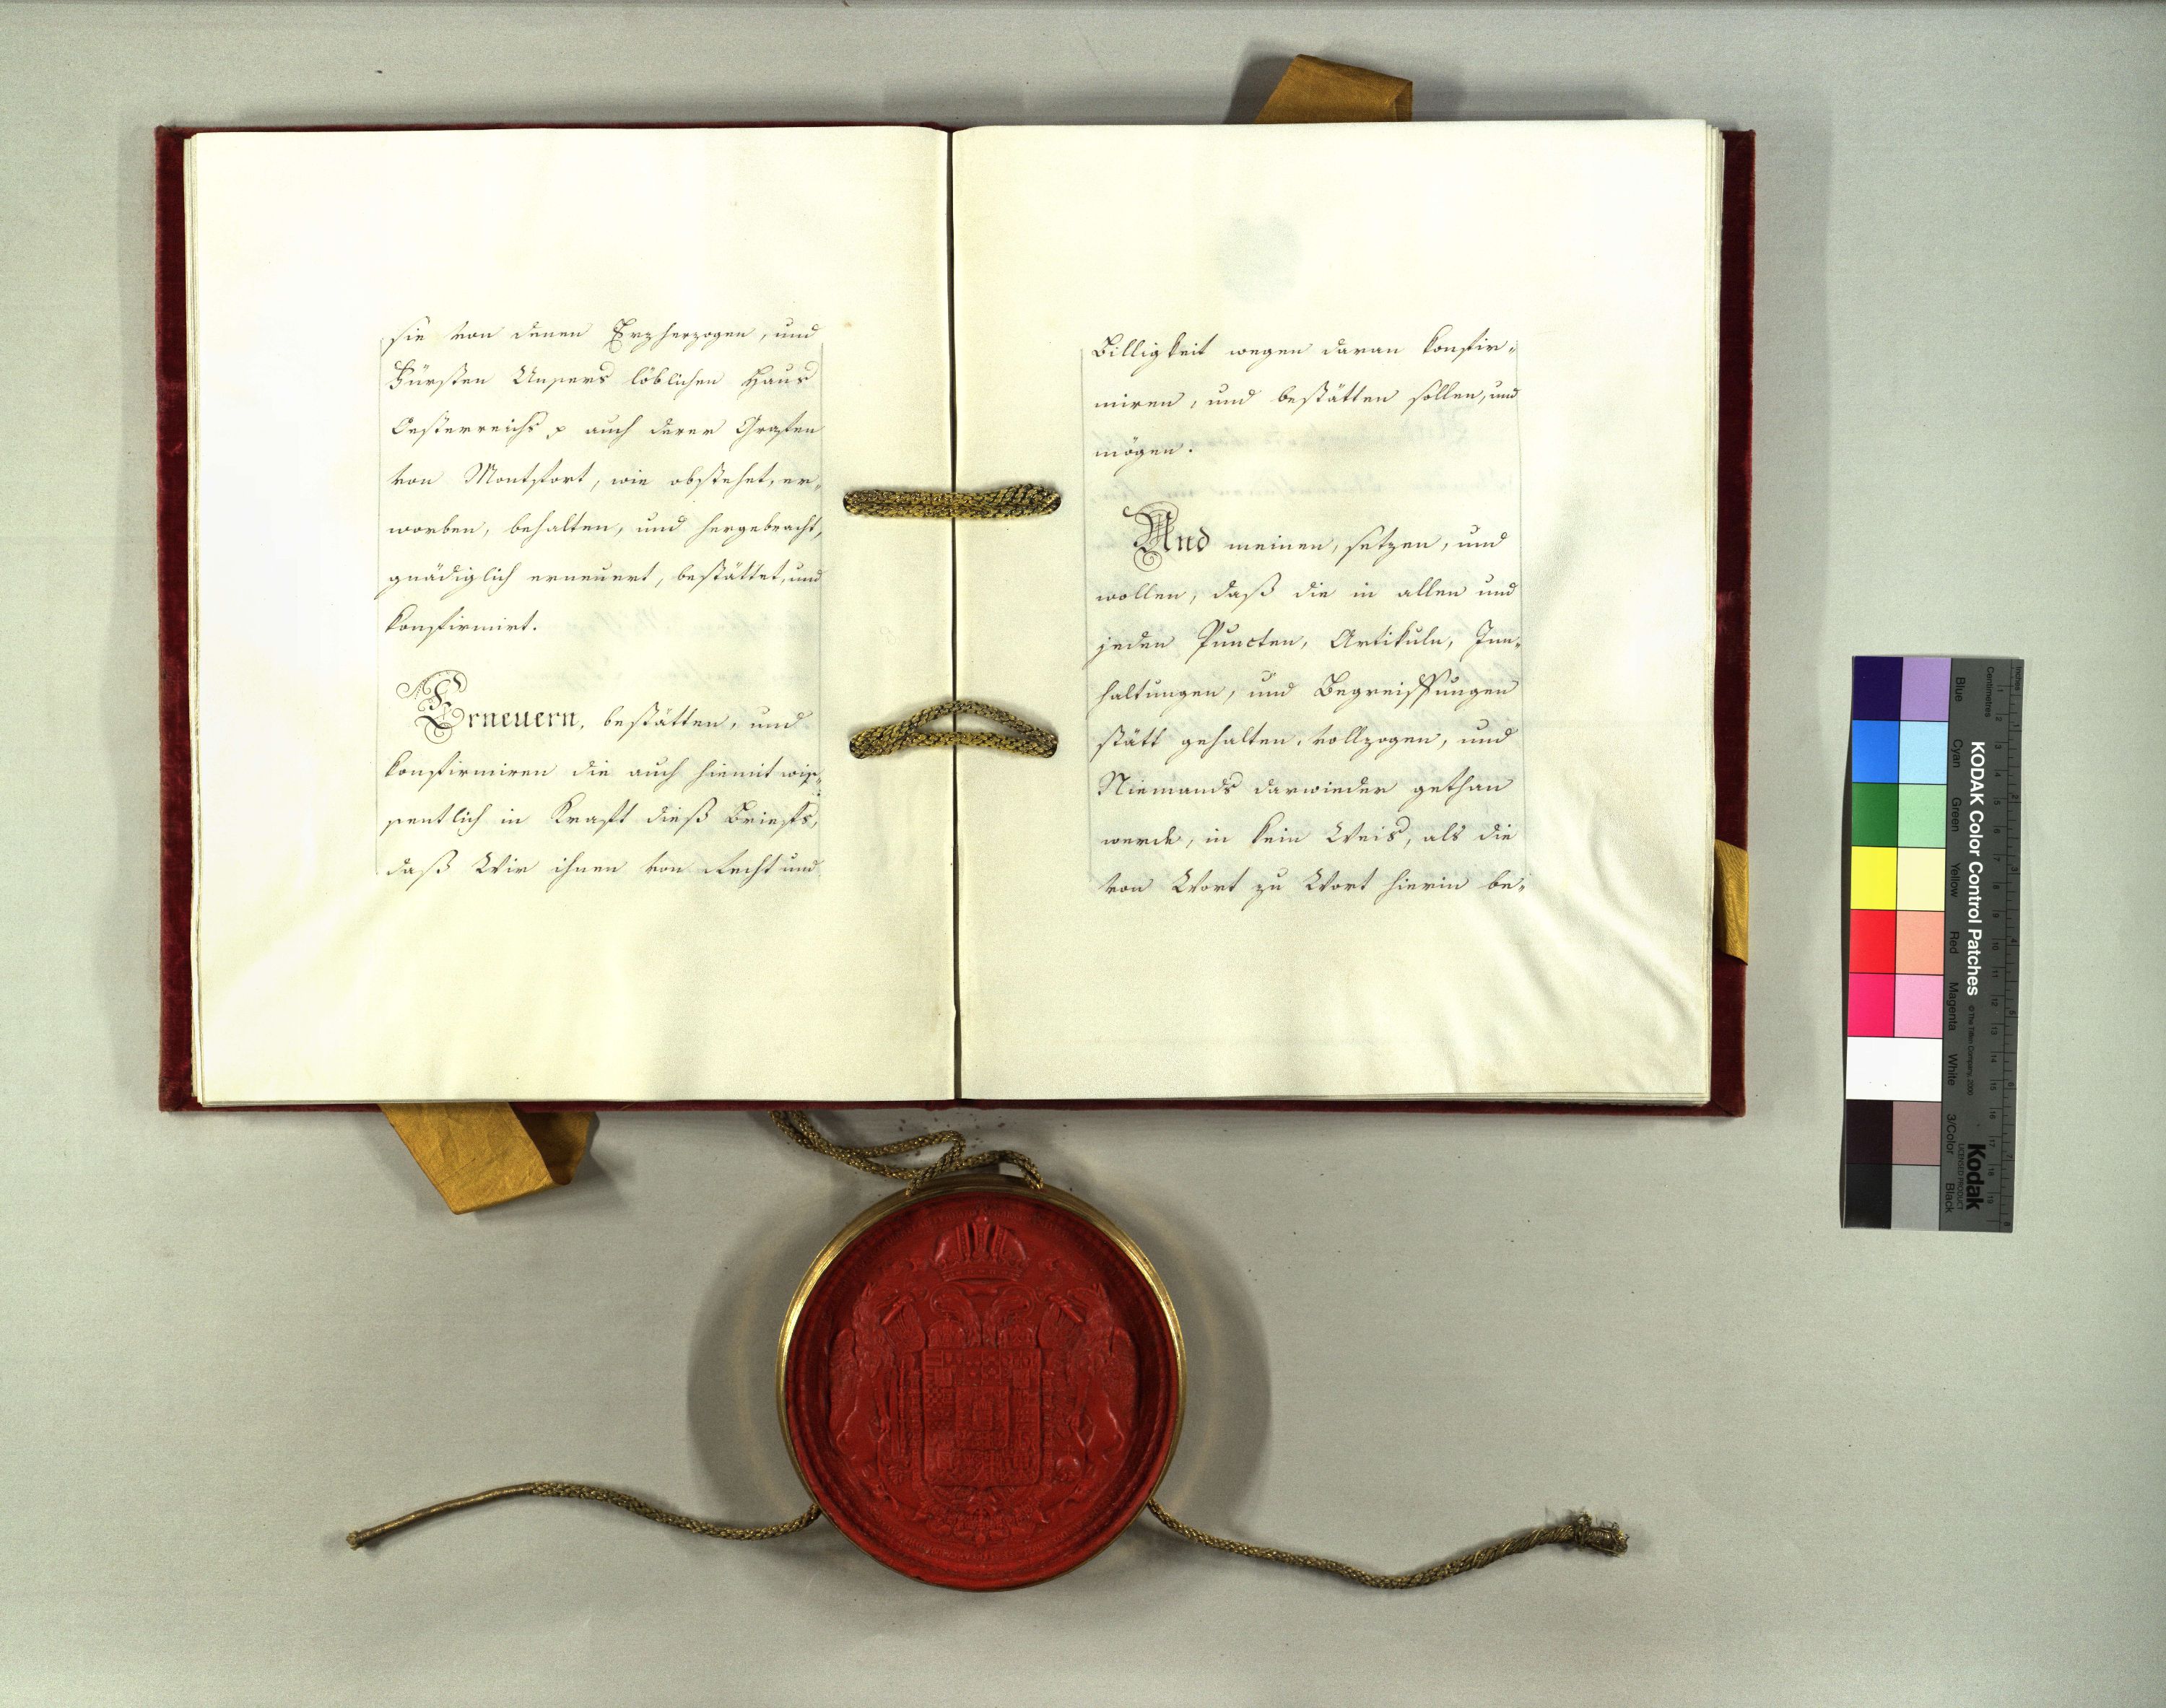 sie von denen Erzherzogen, und
Fürsten Unsers löblichen Haus
Oesterreichs p auch derer Grafen
von Montfort, wie obstehet, er„
worben, behalten, und hergebracht,
gnädiglich erneuert, bestättet, und
konfirmirt.
Erneuern, bestätten, und
konfirmiren die auch hiemit wis„
sentlich in Kraft dieß Briefs,
daß Wir ihnen von Recht und
Billigkeit wegen daran konfir„
miren, und bestätten sollen, und
mögen.
Und meinen, setzen, und
wollen, daß die in allen und
jeden Puncten, Artikuln, Inn„
haltungen, und Begreiffungen
stätt gehalten, vollzogen, und
Niemands darwieder gethan
werde, in kein Weis, als die
von Wort zu Wort hierin be„
KODAK Color Control Patches
© The Tiffen Company, 2000
Kodak
LICENSED PRODUCT
Inches
Centimetres
Blue Cyan Green Yellow Red Magenta White 3/Color Black